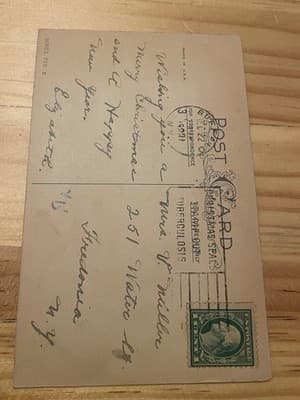 POST CARD
MADE IN U.S.A.
Wishing you a
Merry Christmas
and A Happy
New Year.
Elizabeth.
Mrs V Miller
251 Water St.
Fredonia
N.Y.
DEC 22
3 PM
1921
N.Y.
CHRISTMAS SEALS
TUBERCULOSIS